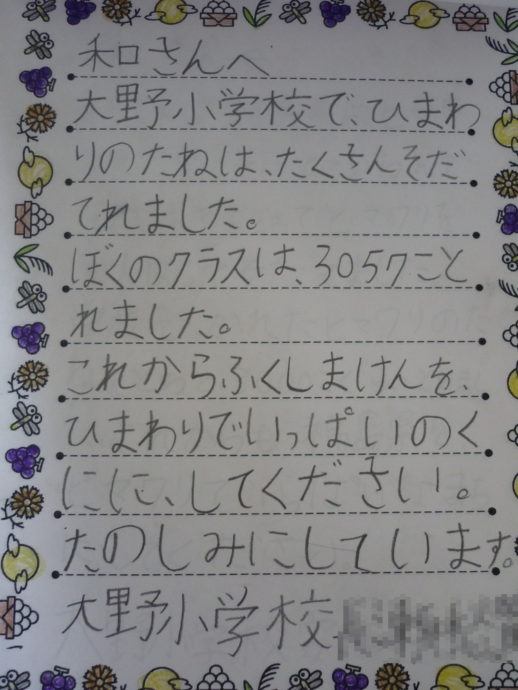 和口さんへ
大野小学校で、ひまわ
りのたねは、たくさんそだ
てれました。
ぼくのクラスは、3057 こと
れました。
これからふくしまけんを、
ひまわりでいっぱいのく
にに、してください。
たのしみにしています。
大野小学校